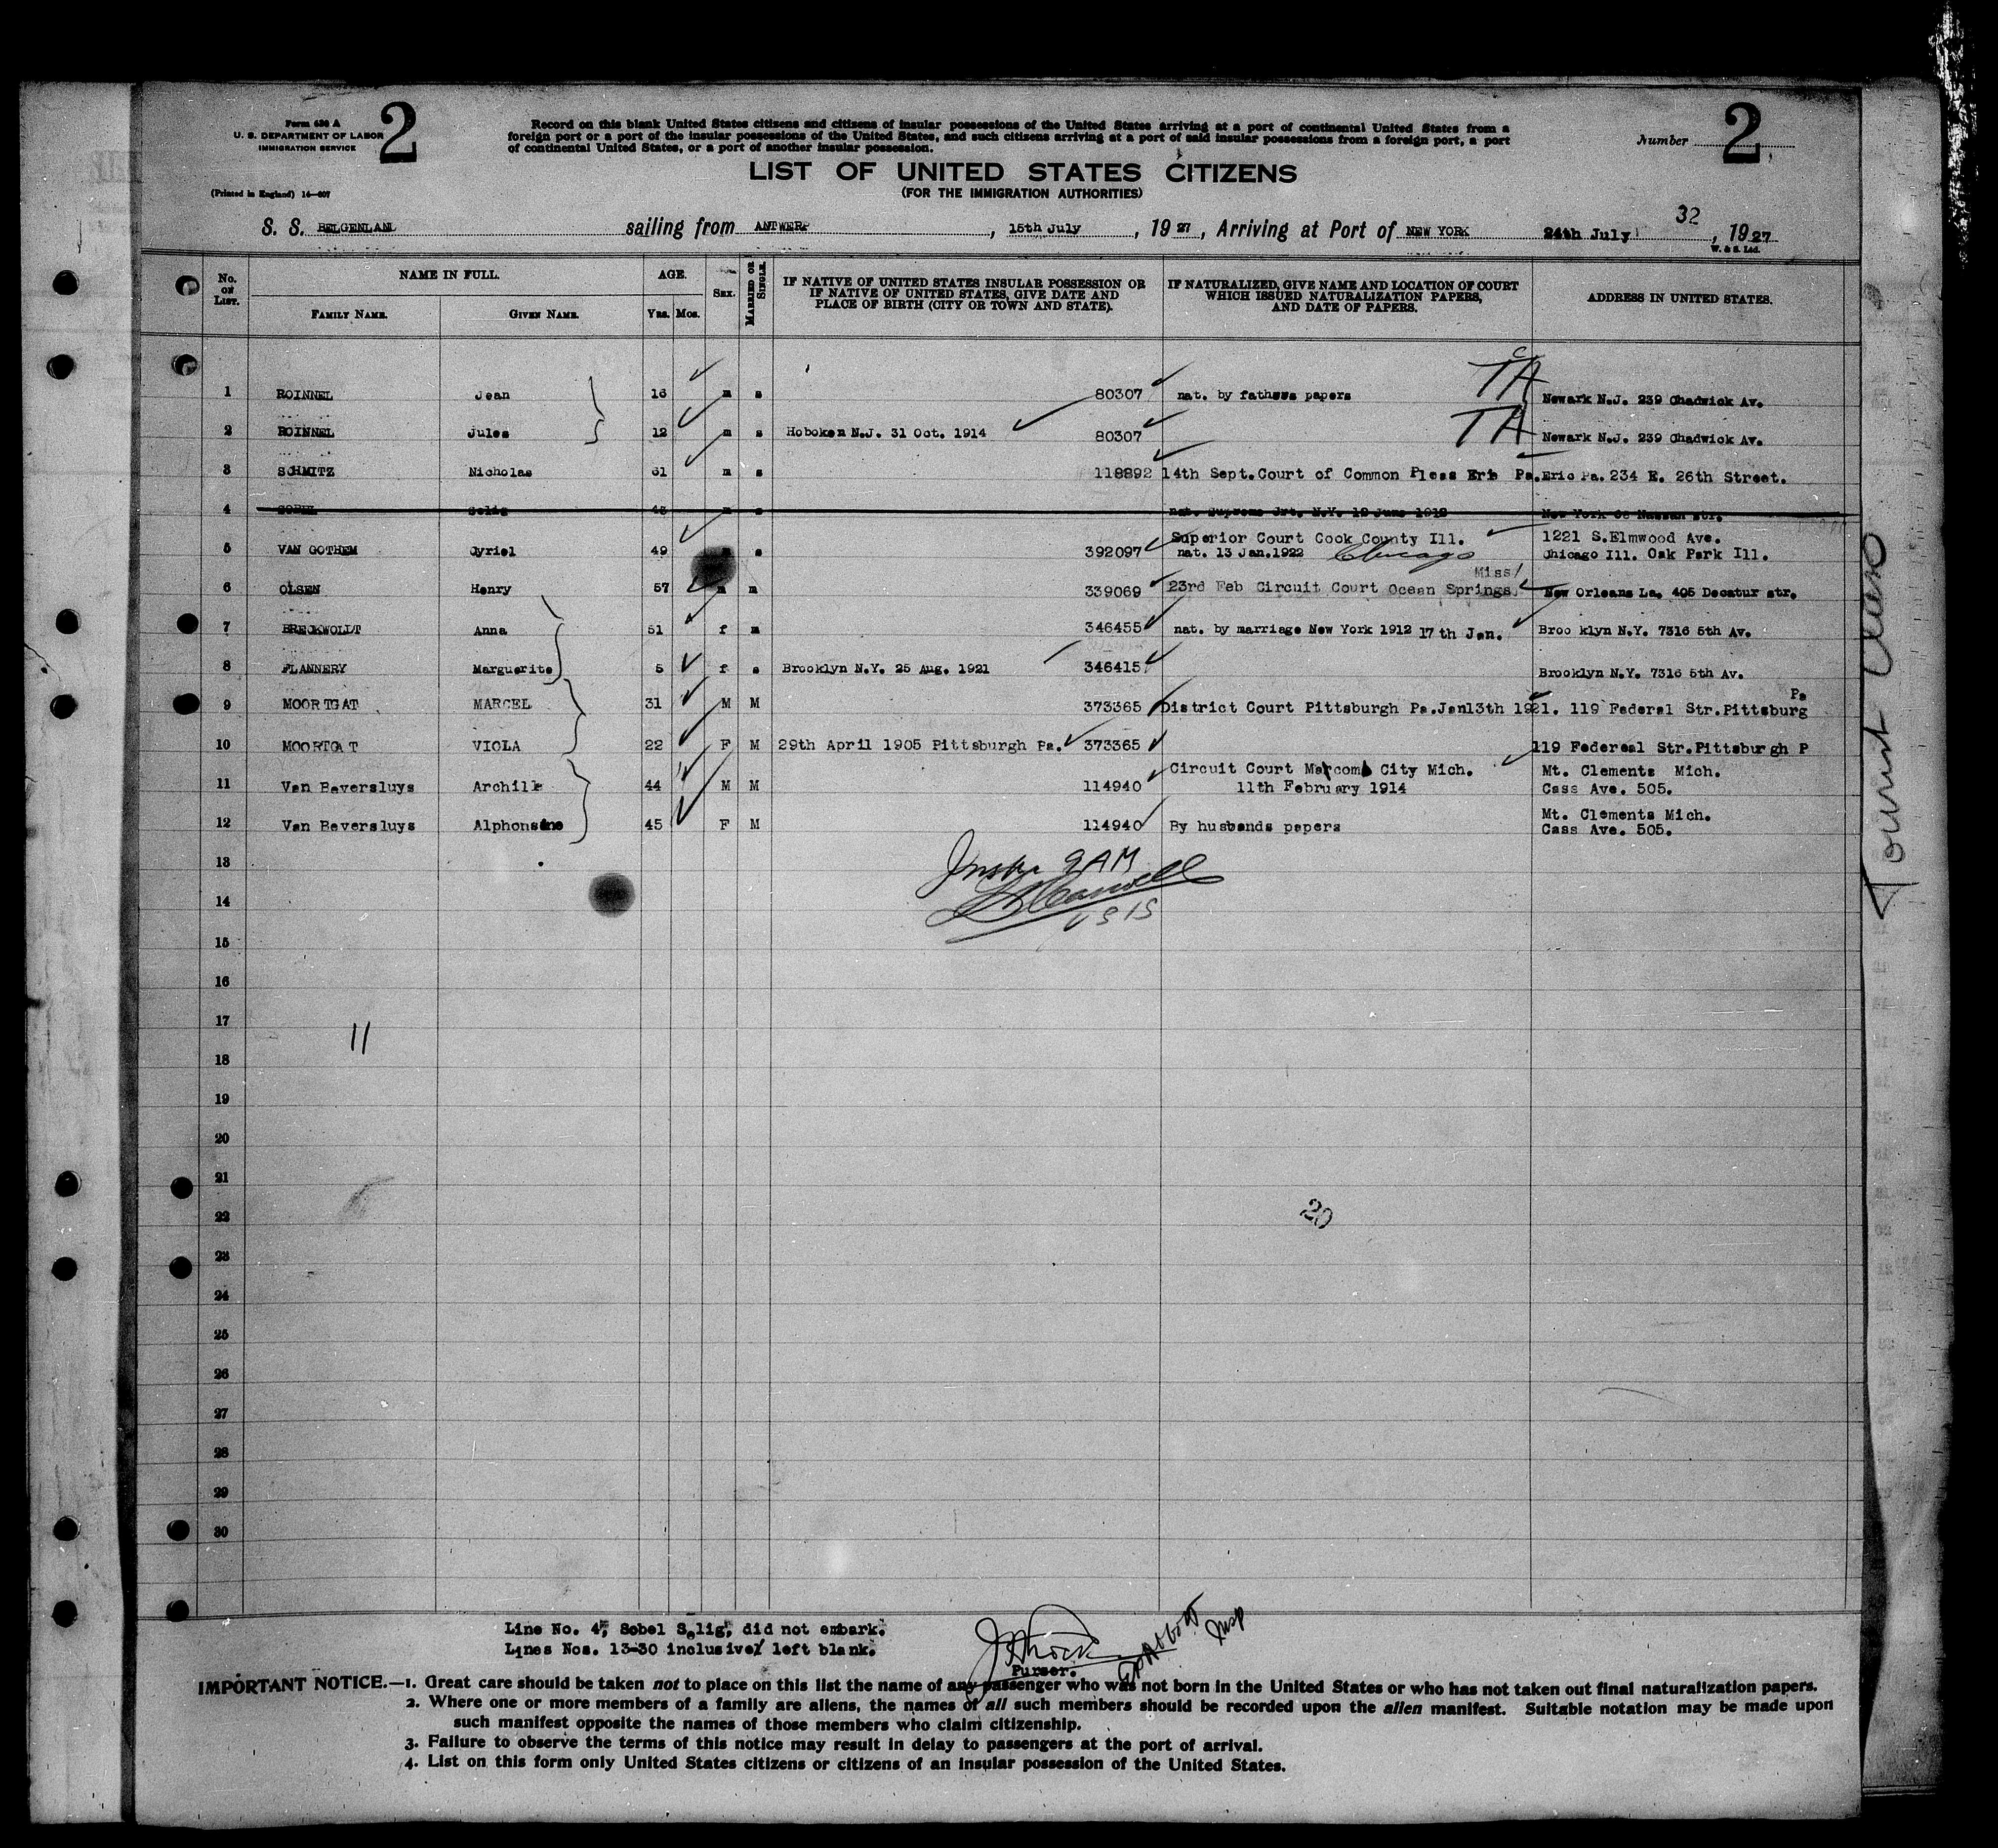 Form 630 A
U. S. DEPARTMENT OF LABOR
IMMIGRATION SERVICE
2
(Printed in England) 14—607
Record on this blank United States citizens and citizens of insular possessions of the United States arriving at a port of continental United States from a
foreign port or a port of the insular possessions of the United States, and such citizens arriving at a port of said insular possessions from a foreign port, a port
of continental United States, or a port of another insular possession.
Number 2
LIST OF UNITED STATES CITIZENS
(FOR THE IMMIGRATION AUTHORITIES)
32
S. S. BELGENLAND sailing from ANTWERP, 15th July, 1927, Arriving at Port of NEW YORK 24th July, 1927
W. & S. Ltd.
No. on List. NAME IN FULL. AGE. Sex. Married or Single. IF NATIVE OF UNITED STATES INSULAR POSSESSION OR IF NATIVE OF UNITED STATES, GIVE DATE AND PLACE OF BIRTH (CITY OR TOWN AND STATE). IF NATURALIZED, GIVE NAME AND LOCATION OF COURT WHICH ISSUED NATURALIZATION PAPERS, AND DATE OF PAPERS. ADDRESS IN UNITED STATES.
Family Name. Given Name. Yrs. Mos.
1 ROINNEL Jean 16 m s 80307 nat. by fathers papers TA Newark N.J. 239 Chadwick Av.
2 ROINNEL Jules 12 m s Hoboken N.J. 31 Oct. 1914 80307 TA Newark N.J. 239 Chadwick Av.
3 SCHMITZ Nicholas 61 m s 118892 14th Sept.Court of Common Pless Erie Pa. Eric Pa. 234 E. 26th Street.
4 SOBEL Selig 43 m s nat. Supreme Crt. N.Y. 12 June 1912 New York 68 Nassau str.
Superior Court Cook County Ill. 1221 S.Elmwood Ave.
5 VAN GOTHEM Cyriel 49 s 392097 nat. 13 Jan.1922 Chicago Chicago Ill. Oak Park Ill.
Miss/
6 OLSEN Henry 57 m m 339069 23rd Feb Circuit Court Ocean Springs. New Orleans La. 405 Decatur str.
7 BRECKWOLDT Anna 51 f m 346455 nat. by marriage New York 1912 17th Jan. Broo klyn N.Y. 7316 5th Av.
8 FLANNERY Marguerite 5 f s Brooklyn N.Y. 25 Aug. 1921 346415 Brooklyn N.Y. 7316 5th Av.
Pa
9 MOORTGAT MARCEL 31 M M 373365 District Court Pittsburgh Pa.Jan13th 1921. 119 Federal Str.Pittsburg
10 MOORTGAT VIOLA 22 F M 29th April 1905 Pittsburgh Pa. 373365 119 Federeal Str.Pittsburgh P
Circuit Court Marcomb City Mich. Mt. Clements Mich.
11 Van Beversluys Archille 44 M M 114940 11th February 1914 Cass Ave. 505.
Mt. Clements Mich.
12 Van Beversluys Alphonsine 45 F M 114940 By husbands papers Cass Ave. 505.
13
14
15
16
17
18
19
20
21
22
23
24
25
26
27
28
29
30
9 AM
11
20
Tourist Class
Line No. 4, Sobel Selig, did not embark.
Lines Nos. 13-30 inclusive/ left blank.
Purser.
Insp
IMPORTANT NOTICE.—1. Great care should be taken not to place on this list the name of any passenger who was not born in the United States or who has not taken out final naturalization papers.
2. Where one or more members of a family are aliens, the names of all such members should be recorded upon the alien manifest. Suitable notation may be made upon
such manifest opposite the names of those members who claim citizenship.
3. Failure to observe the terms of this notice may result in delay to passengers at the port of arrival.
4. List on this form only United States citizens or citizens of an insular possession of the United States.